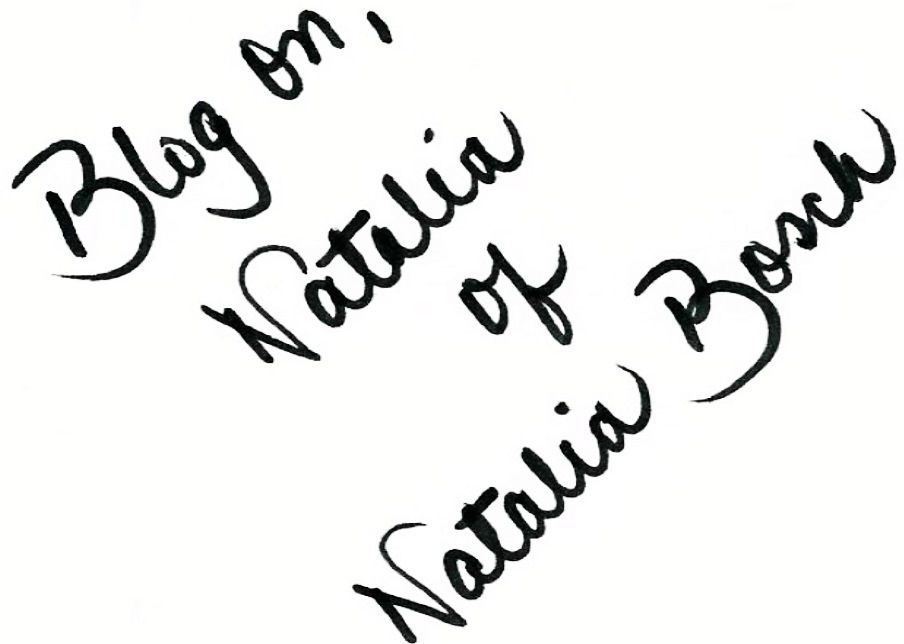 Blog on,
Natalia
of
Natalia Bosch